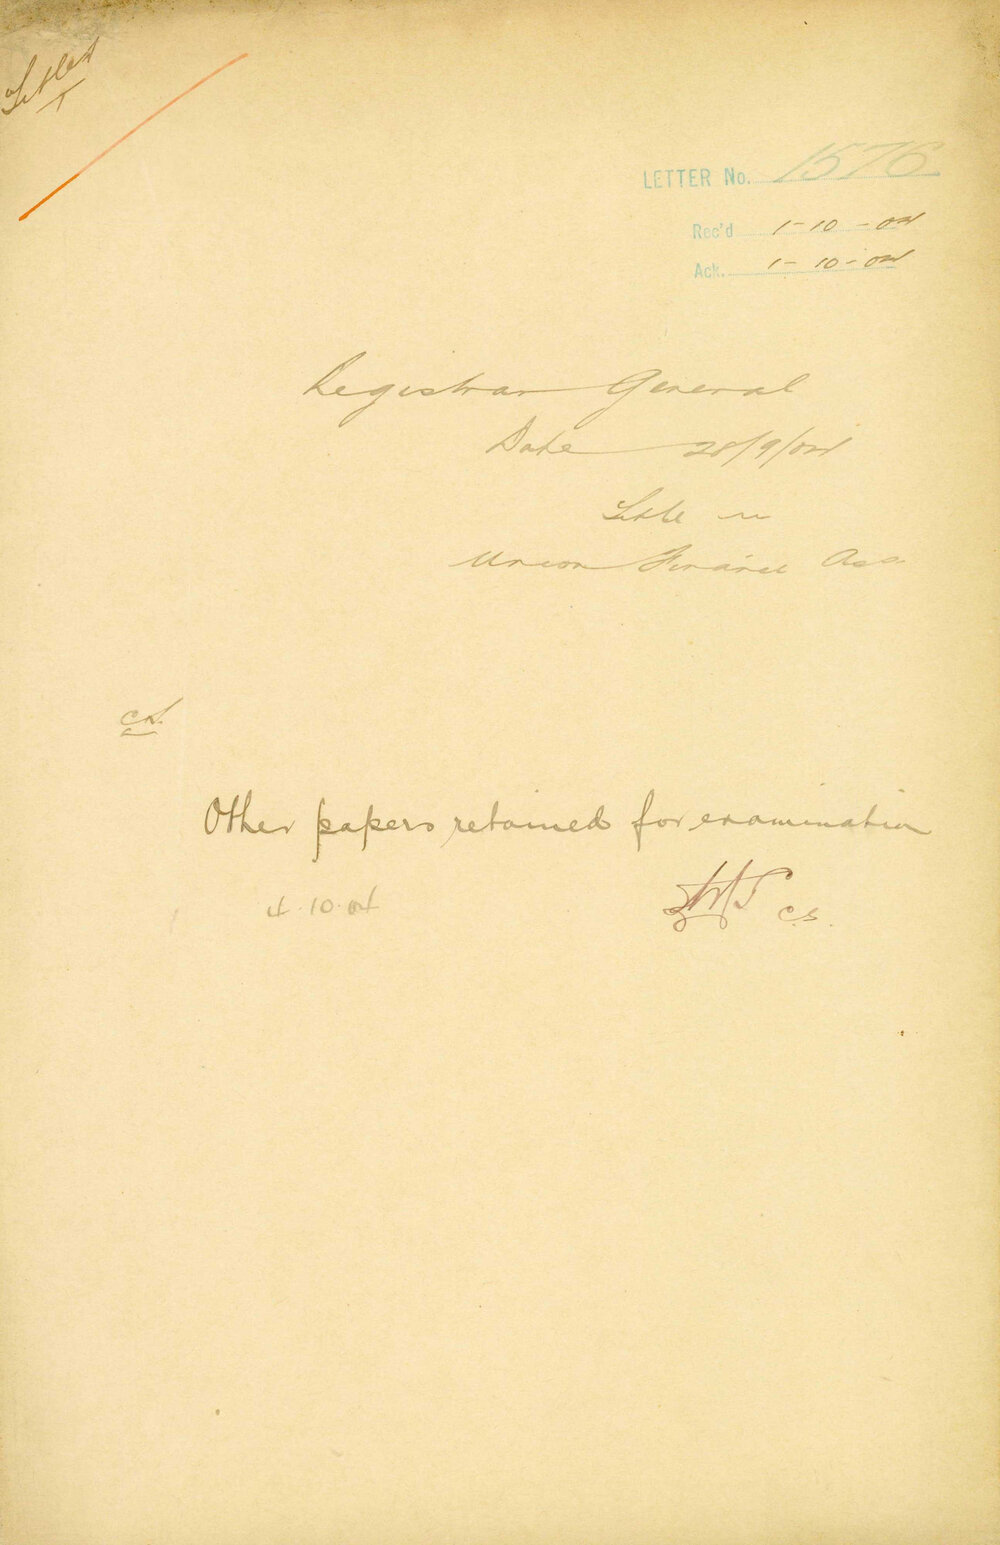 Titles
T
LETTER No. 1576
Rec'd 1-10-04
Ack. 1-10-04
Registrar General
Date 28/9/04
Title in
Union Finance Ass.
CS.
Other papers retained for examination
4.10.04
C.S.